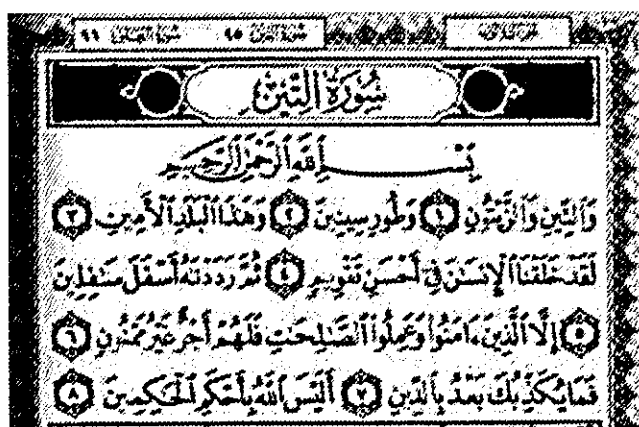 سُورَةُ العَلَقِ ٩٦ سُورَةُ التِّينِ ٩٥
سُورَةُ التِّينِ
بِسْمِ ٱللَّهِ ٱلرَّحْمَٰنِ ٱلرَّحِيمِ
وَٱلتِّينِ وَٱلزَّيْتُونِ ١ وَطُورِ سِينِينَ ٢ وَهَٰذَا ٱلْبَلَدِ ٱلْأَمِينِ ٣
لَقَدْ خَلَقْنَا ٱلْإِنسَٰنَ فِىٓ أَحْسَنِ تَقْوِيمٍ ٤ ثُمَّ رَدَدْنَٰهُ أَسْفَلَ سَٰفِلِينَ
٥ إِلَّا ٱلَّذِينَ ءَامَنُوا۟ وَعَمِلُوا۟ ٱلصَّٰلِحَٰتِ فَلَهُمْ أَجْرٌ غَيْرُ مَمْنُونٍ ٦
فَمَا يُكَذِّبُكَ بَعْدُ بِٱلدِّينِ ٧ أَلَيْسَ ٱللَّهُ بِأَحْكَمِ ٱلْحَٰكِمِينَ ٨